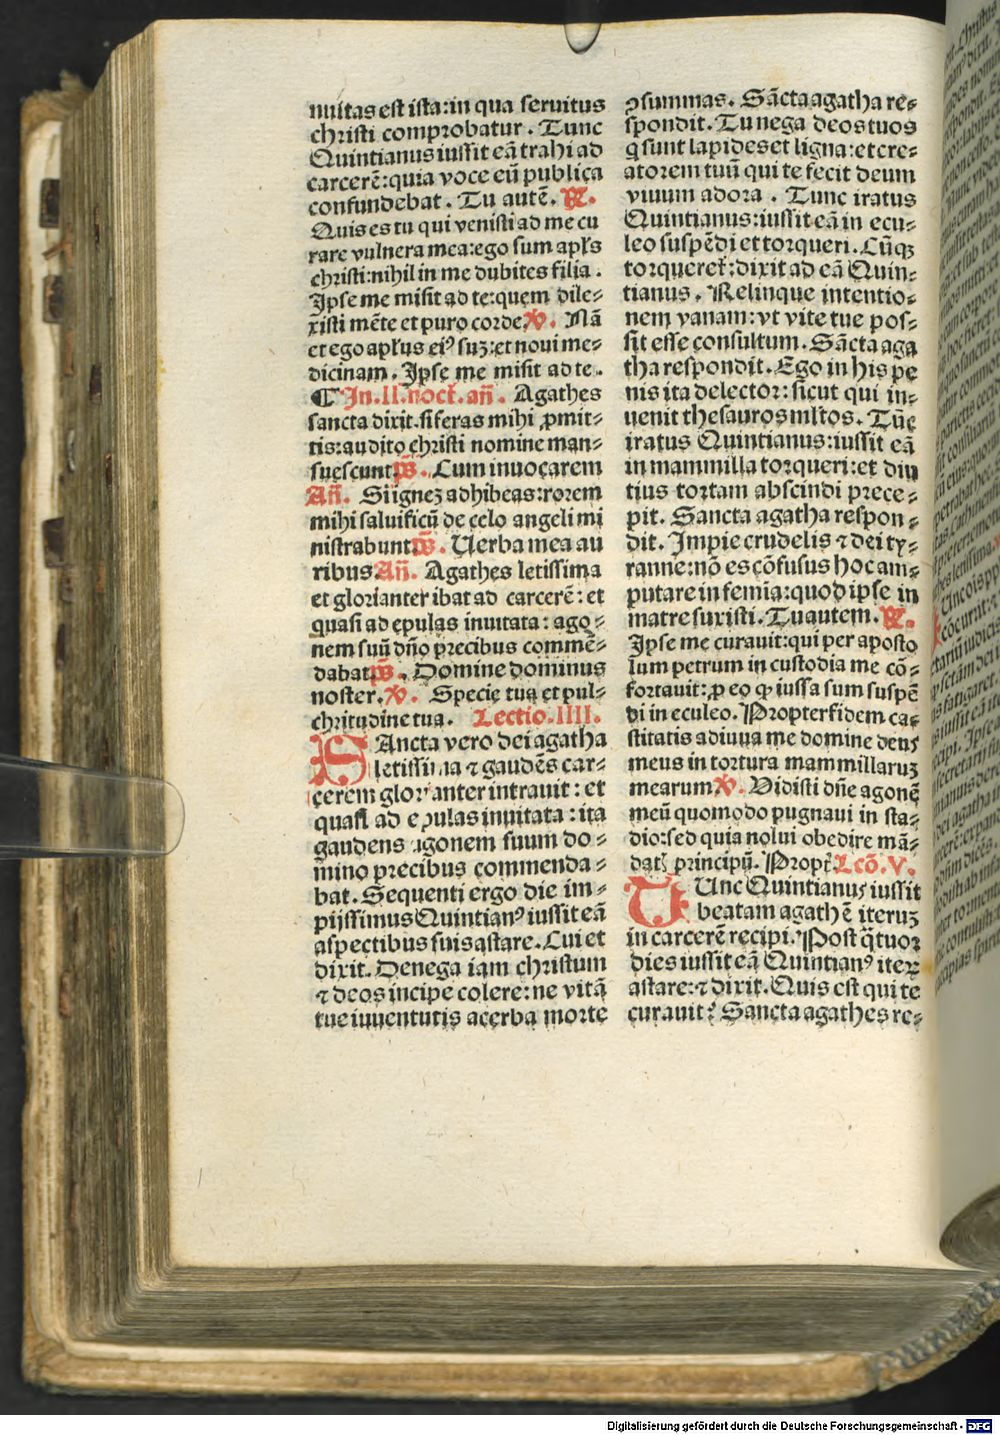 nuitas est ista: in qua seruitus
christi comprobatur. Tunc
Quintianus iussit eã trahi ad
carcerẽ: quia voce eũ publica
confundebat. Tu autẽ. R̃.
Quis es tu qui venisti ad me cu
rare vulnera mea: ego sum apl̃s
christi: nihil in me dubites filia.
Ipse me misit ad te: quem dile⸗
xisti mẽte et puro corde. ℣. Nã
et ego apl̃us eiꝰ suꝫ: et noui me⸗
dicinam. Ipse me misit ad te.
¶ In .II. noct̃. añ. Agathes
sancta dixit. si feras mihi ꝓmit⸗
tis: audito christi nomine man⸗
suescunt p̃s. Cum inuocarem
Añ. Si igneꝫ adhibeas: rorem
mihi saluificũ de celo angeli mi
nistrabunt p̃s. Uerba mea au
ribus Añ. Agathes letissima
et glorianter ibat ad carcerẽ: et
quasi ad epulas inuitata: ago⸗
nem suũ dño precibus commẽ⸗
dabat p̃s. Domine dominus
noster. ℣. Specie tua et pul⸗
chritudine tua. Lectio. IIII.
SAncta vero dei agatha
letissima ⁊ gaudẽs car⸗
cerem glorianter intrauit: et
quasi ad epulas inuitata: ita
gaudens agonem suum do⸗
mino precibus commenda⸗
bat. Sequenti ergo die im⸗
pijssimus Quintianꝰ iussit eã
aspectibus suis astare. Cui et
dixit. Denega iam christum
⁊ deos incipe colere: ne vitã
tue iuuentutis acerba morte
ꝯsummas. Sãcta agatha re⸗
spondit. Tu nega deos tuos
q̃ sunt lapides et ligna: et cre⸗
atorem tuũ qui te fecit deum
viuum adora. Tunc iratus
Quintianus: iussit eã in ecu⸗
leo suspẽdi et torqueri. Cũqꝫ
torqueret̃: dixit ad eã Quin⸗
tianus. Relinque intentio⸗
nem vanam: vt vite tue pos⸗
sit esse consultum. Sãcta aga
tha respondit. Ego in his pe
nis ita delector: sicut qui in⸗
uenit thesauros ml̃tos. Tũc
iratus Quintianus: iussit eã
in mammilla torqueri: et diu
tius tortam abscindi prece⸗
pit. Sancta agatha respon⸗
dit. Impie crudelis ⁊ dei ty⸗
ranne: nõ es cõfusus hoc am⸗
putare in femia: quod ipse in
matre suxisti. Tu autem. R̃.
Ipse me curauit: qui per aposto
lum petrum in custodia me cõ⸗
fortauit: ꝓ eo ꝙ iussa sum suspẽ
di in eculeo. Propter fidem ca⸗
stitatis adiuua me domine deus
meus in tortura mammillaruꝫ
mearum ℣. Vidisti dñe agonẽ
meũ quomodo pugnaui in sta⸗
dio: sed quia nolui obedire mã⸗
datꝭ principũ. Propt̃ Lcõ. V.
TUnc Quintianus iussit
beatam agathẽ iteruꝫ
in carcerẽ recipi. Post q̃tuor
dies iussit eã Quintianꝰ iteꝝ
astare: ⁊ dixit. Quis est qui te
curauit? Sancta agathes re⸗
Digitalisierung gefördert durch die Deutsche Forschungsgemeinschaft - DFG